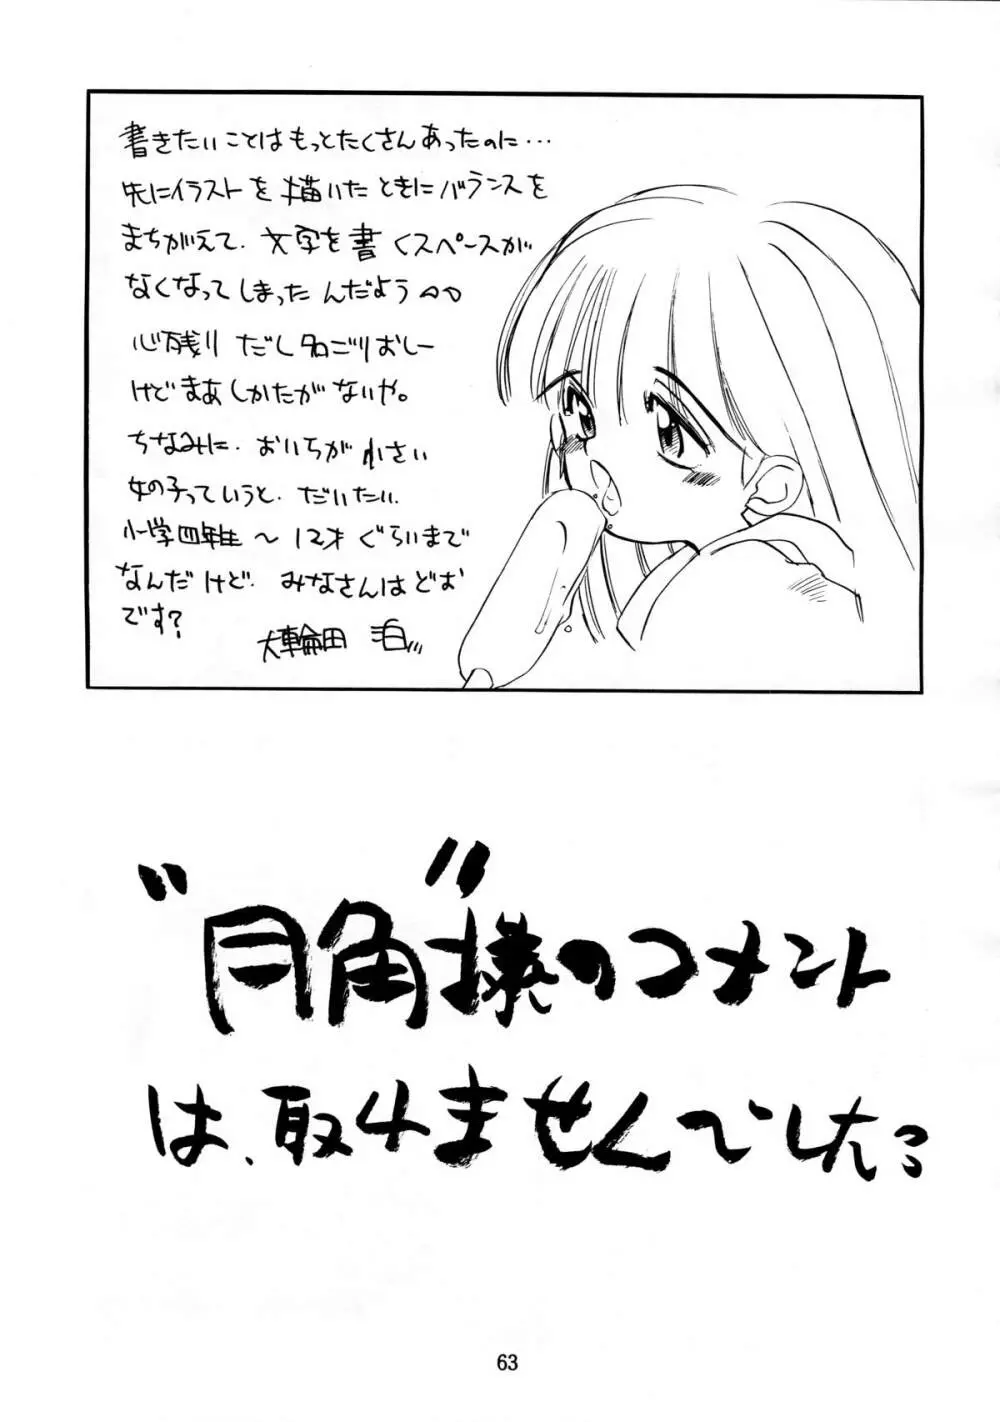 書きたいことはもっとたくさんあったのに…
先にイラストを描いたときにバランスを
まちがえて、文字を書くスペースが
なくなってしまったんだよう
心残りだし名ごりおしー
けどまあしかたがないや。
ちなみに、おいちが小さい
女の子っていうと、だいたい、
小学四年生～12才ぐらいまで
なんだけど、みなさんはどお
です？
大輪田 泊
"月角"様のコメント
は、取れませんでした
63